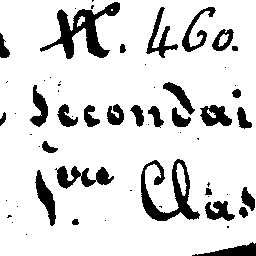 N. 460.
Secondai
1re Clas